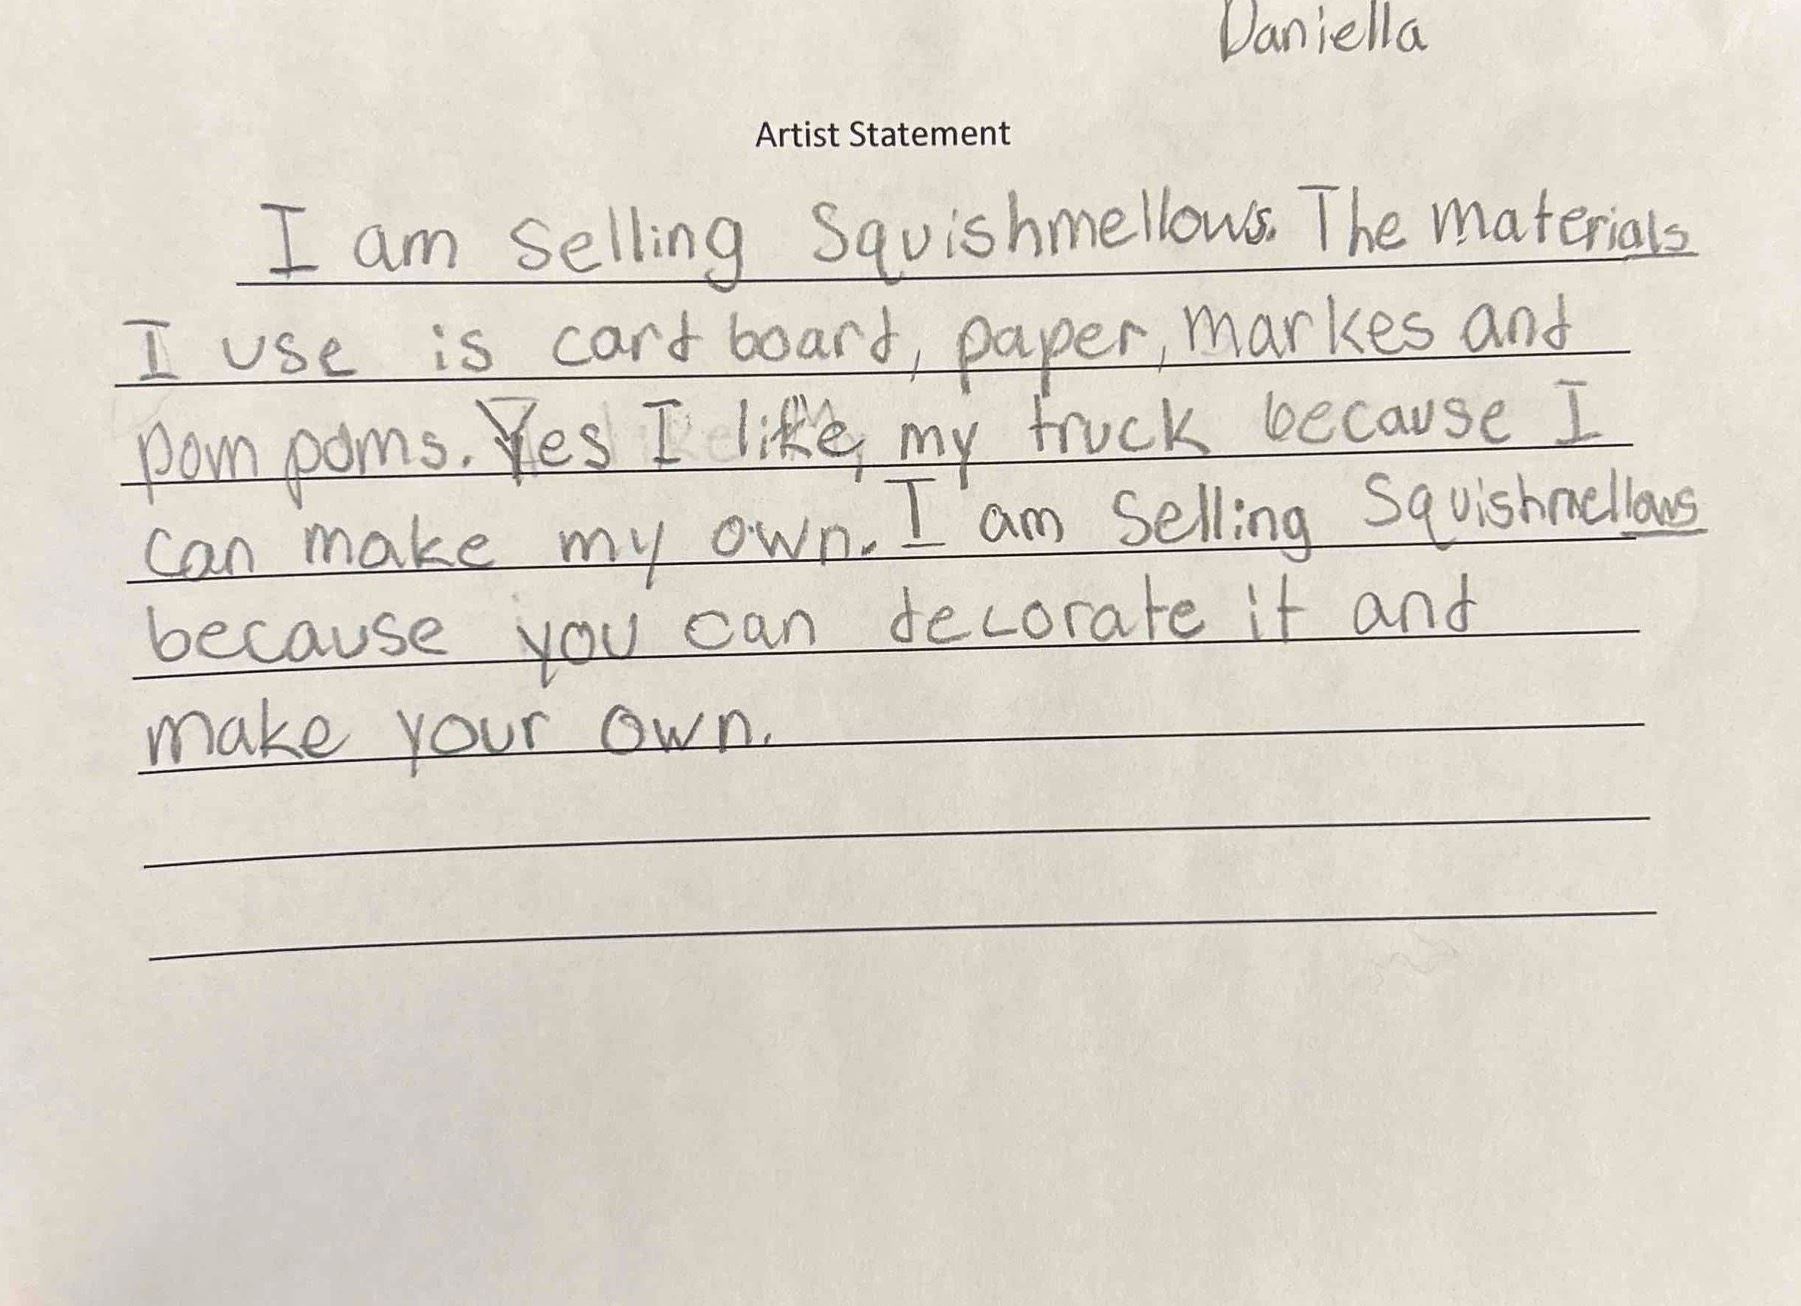 Daniella
Artist Statement
I am selling Squishmellows. The materials
I use is cardboard, paper, markes and
pom poms. Yes I like my truck because I
can make my own. I am selling Squishmellows
because you can decorate it and
make your own.